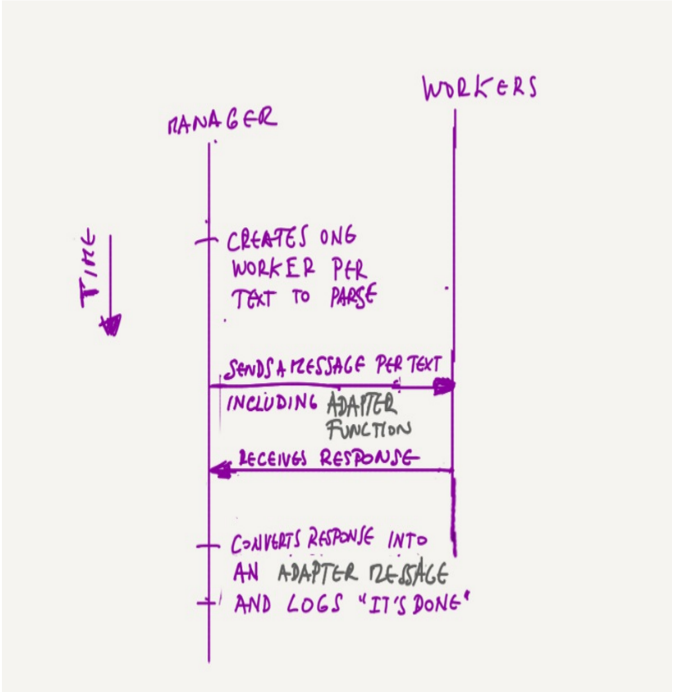 WORKERS
MANAGER
TIME
CREATES ONE
WORKER PER
TEXT TO PARSE
SENDS A MESSAGE PER TEXT
INCLUDING ADAPTER
FUNCTION
RECEIVES RESPONSE
CONVERTS RESPONSE INTO
AN ADAPTER MESSAGE
AND LOGS "IT'S DONE"